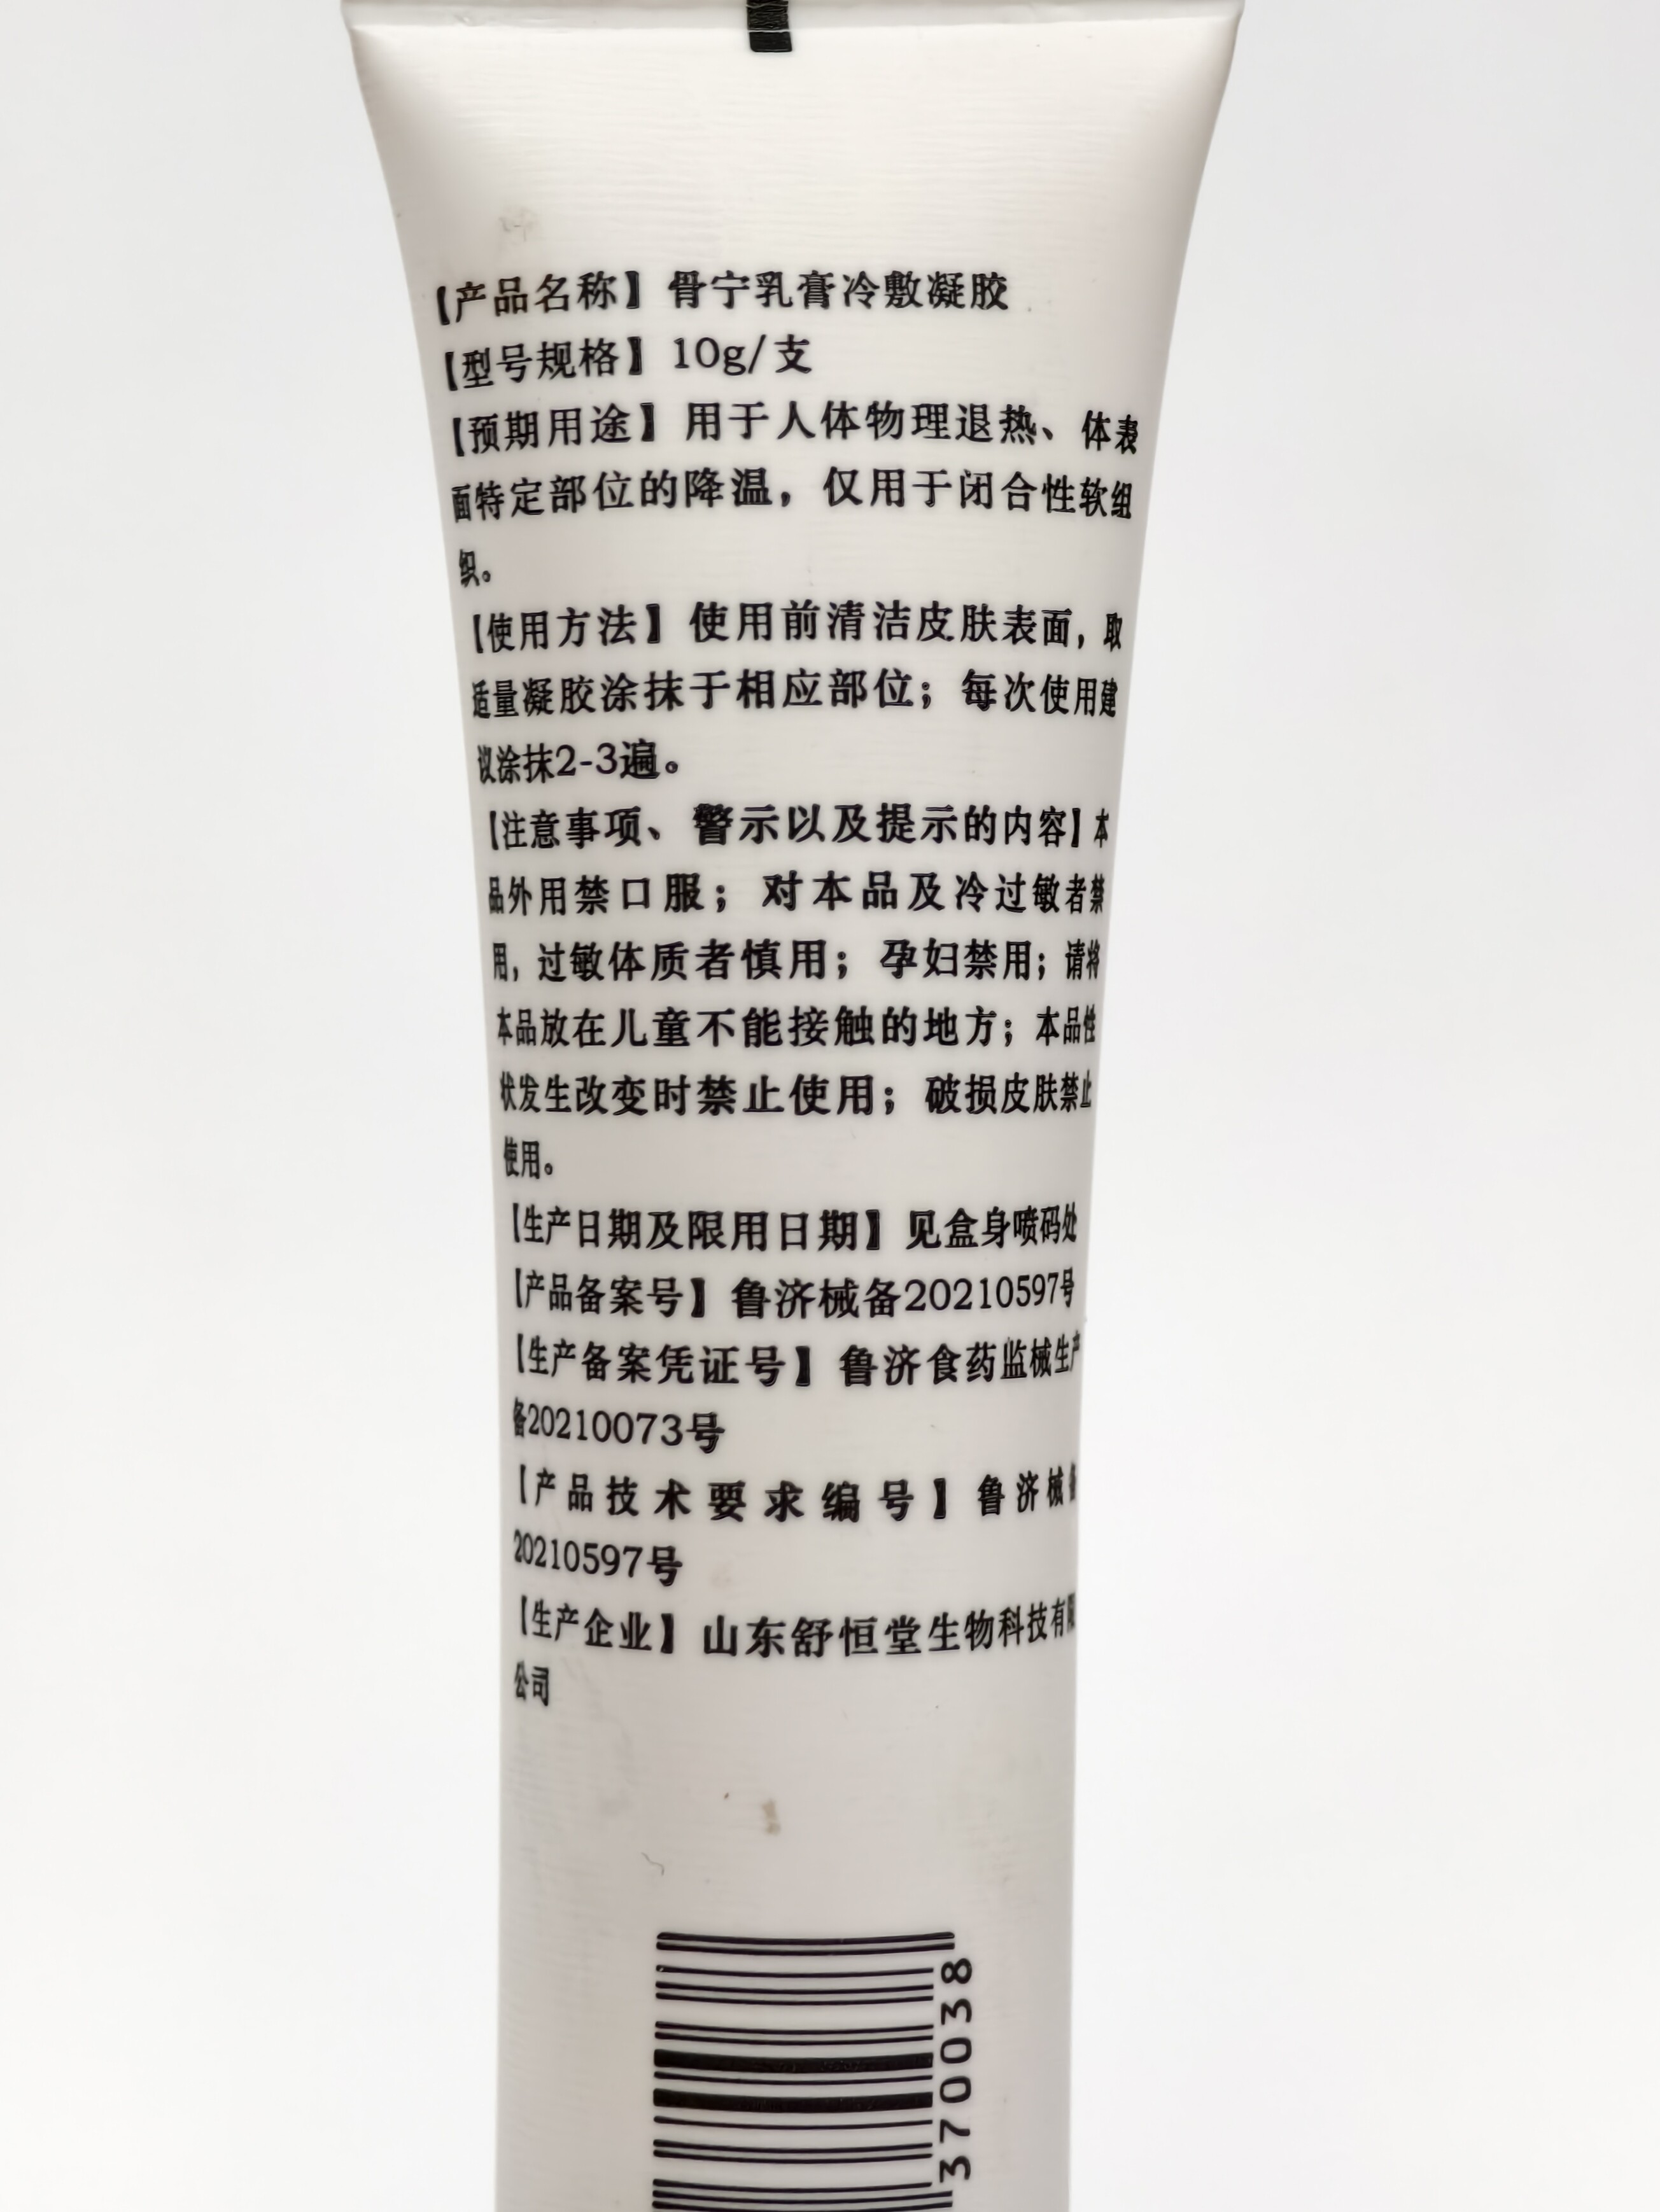 【产品名称】骨宁乳膏冷敷凝胶
【型号规格】10g/支
【预期用途】用于人体物理退热、体表
面特定部位的降温，仅用于闭合性软组
织。
【使用方法】使用前清洁皮肤表面，取
适量凝胶涂抹于相应部位；每次使用建
议涂抹2-3遍。
【注意事项、警示以及提示的内容】本
品外用禁口服；对本品及冷过敏者禁
用，过敏体质者慎用；孕妇禁用；请将
本品放在儿童不能接触的地方；本品性
状发生改变时禁止使用；破损皮肤禁止
使用。
【生产日期及限用日期】见盒身喷码处
【产品备案号】鲁济械备20210597号
【生产备案凭证号】鲁济食药监械生产
备20210073号
【产品技术要求编号】鲁济械备
20210597号
【生产企业】山东舒恒堂生物科技有限
公司
370038